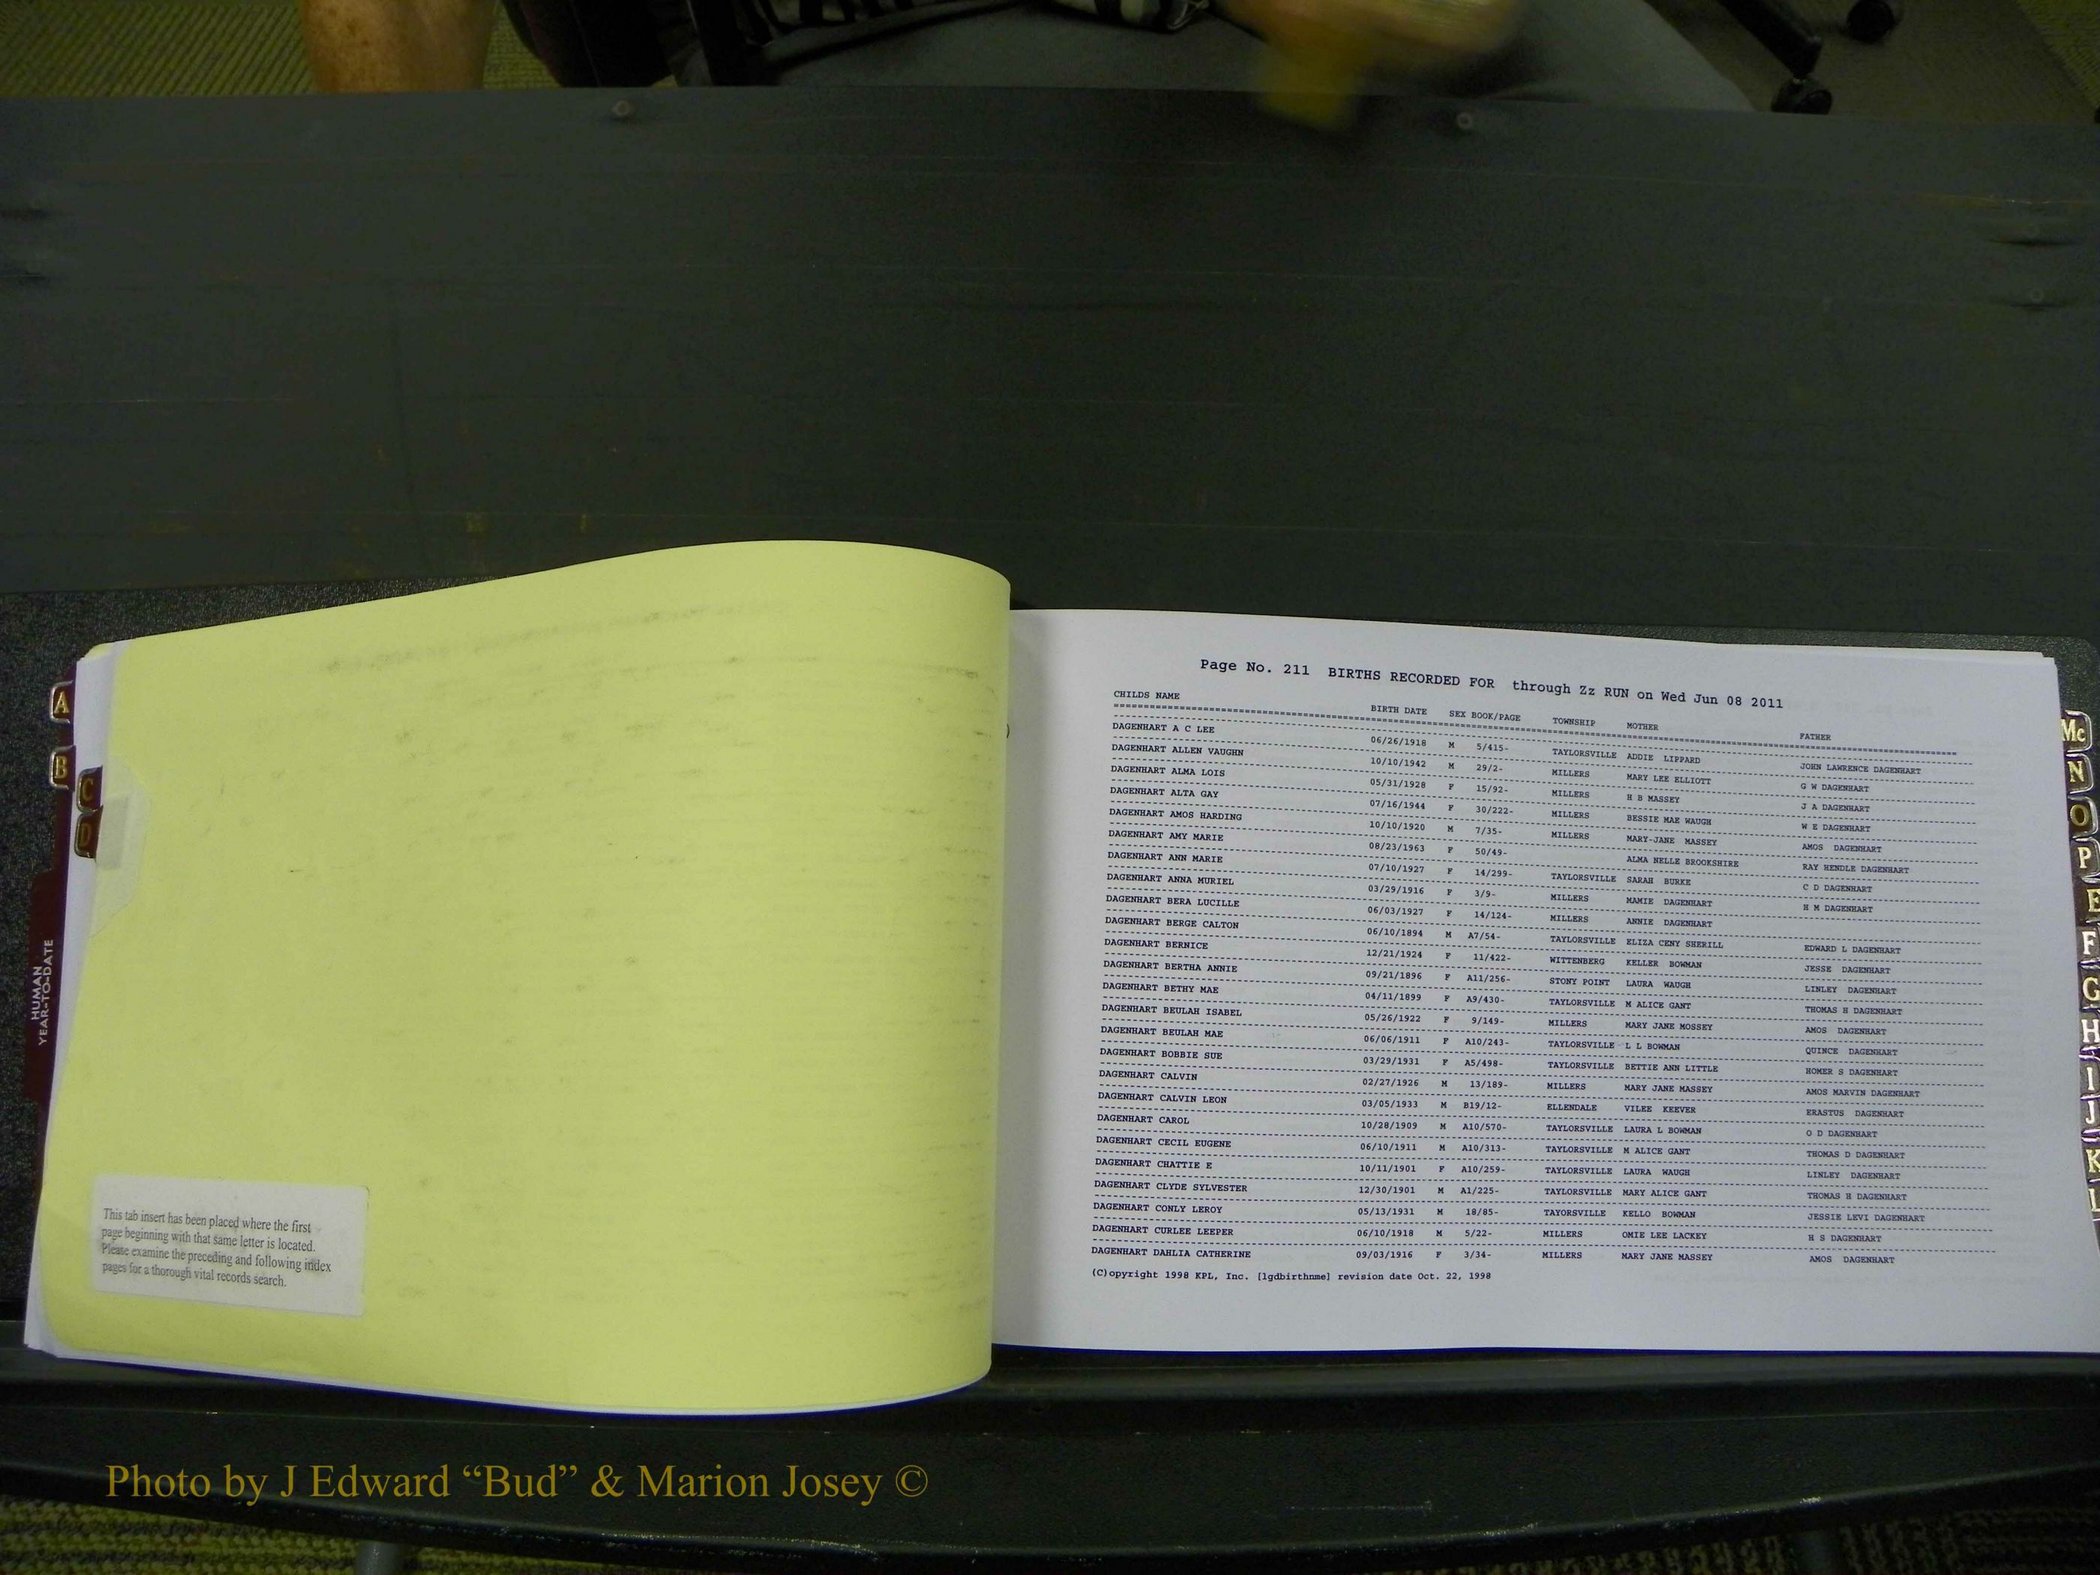 A
B
C
D
HUMAN
YEAR-TO-DATE
This tab insert has been placed where the first
page beginning with that same letter is located.
Please examine the preceding and following index
pages for a thorough vital records search.
Page No. 211 BIRTHS RECORDED FOR through Zz RUN on Wed Jun 08 2011
CHILDS NAME BIRTH DATE SEX BOOK/PAGE TOWNSHIP MOTHER FATHER
DAGENHART A C LEE 06/26/1918 M 5/415- TAYLORSVILLE ADDIE LIPPARD JOHN LAWRENCE DAGENHART
DAGENHART ALLEN VAUGHN 10/10/1942 M 29/2- MILLERS MARY LEE ELLIOTT G W DAGENHART
DAGENHART ALMA LOIS 05/31/1928 F 15/92- MILLERS H B MASSEY J A DAGENHART
DAGENHART ALTA GAY 07/16/1944 F 30/222- MILLERS BESSIE MAE WAUGH W E DAGENHART
DAGENHART AMOS HARDING 10/10/1920 M 7/35- MILLERS MARY-JANE MASSEY AMOS DAGENHART
DAGENHART AMY MARIE 08/23/1963 F 50/49- ALMA NELLE BROOKSHIRE RAY HENDLE DAGENHART
DAGENHART ANN MARIE 07/10/1927 F 14/299- TAYLORSVILLE SARAH BURKE C D DAGENHART
DAGENHART ANNA MURIEL 03/29/1916 F 3/9- MILLERS MAMIE DAGENHART H M DAGENHART
DAGENHART BERA LUCILLE 06/03/1927 F 14/124- MILLERS ANNIE DAGENHART
DAGENHART BERGE CALTON 06/10/1894 M A7/54- TAYLORSVILLE ELIZA CENY SHERILL EDWARD L DAGENHART
DAGENHART BERNICE 12/21/1924 F 11/422- WITTENBERG KELLER BOWMAN JESSE DAGENHART
DAGENHART BERTHA ANNIE 09/21/1896 F A11/256- STONY POINT LAURA WAUGH LINLEY DAGENHART
DAGENHART BETHY MAE 04/11/1899 F A9/430- TAYLORSVILLE M ALICE GANT THOMAS H DAGENHART
DAGENHART BEULAH ISABEL 05/26/1922 F 9/149- MILLERS MARY JANE MOSSEY AMOS DAGENHART
DAGENHART BEULAH MAE 06/06/1911 F A10/243- TAYLORSVILLE L L BOWMAN QUINCE DAGENHART
DAGENHART BOBBIE SUE 03/29/1931 F A5/498- TAYLORSVILLE BETTIE ANN LITTLE HOMER S DAGENHART
DAGENHART CALVIN 02/27/1926 M 13/189- MILLERS MARY JANE MASSEY AMOS MARVIN DAGENHART
DAGENHART CALVIN LEON 03/05/1933 M B19/12- ELLENDALE VILEE KEEVER ERASTUS DAGENHART
DAGENHART CAROL 10/28/1909 M A10/570- TAYLORSVILLE LAURA L BOWMAN O D DAGENHART
DAGENHART CECIL EUGENE 06/10/1911 M A10/313- TAYLORSVILLE M ALICE GANT THOMAS D DAGENHART
DAGENHART CHATTIE E 10/11/1901 F A10/259- TAYLORSVILLE LAURA WAUGH LINLEY DAGENHART
DAGENHART CLYDE SYLVESTER 12/30/1901 M A1/225- TAYLORSVILLE MARY ALICE GANT THOMAS H DAGENHART
DAGENHART CONLY LEROY 05/13/1931 M 18/85- TAYORSVILLE KELLO BOWMAN JESSIE LEVI DAGENHART
DAGENHART CURLEE LEEPER 06/10/1918 M 5/22- MILLERS OMIE LEE LACKEY H S DAGENHART
DAGENHART DAHLIA CATHERINE 09/03/1916 F 3/34- MILLERS MARY JANE MASSEY AMOS DAGENHART
(C)opyright 1998 KPL, Inc. [lgdbirthnme] revision date Oct. 22, 1998
Mc
N
O
P
E
F
G
H
I
J
K
L
Photo by J Edward “Bud” & Marion Josey ©